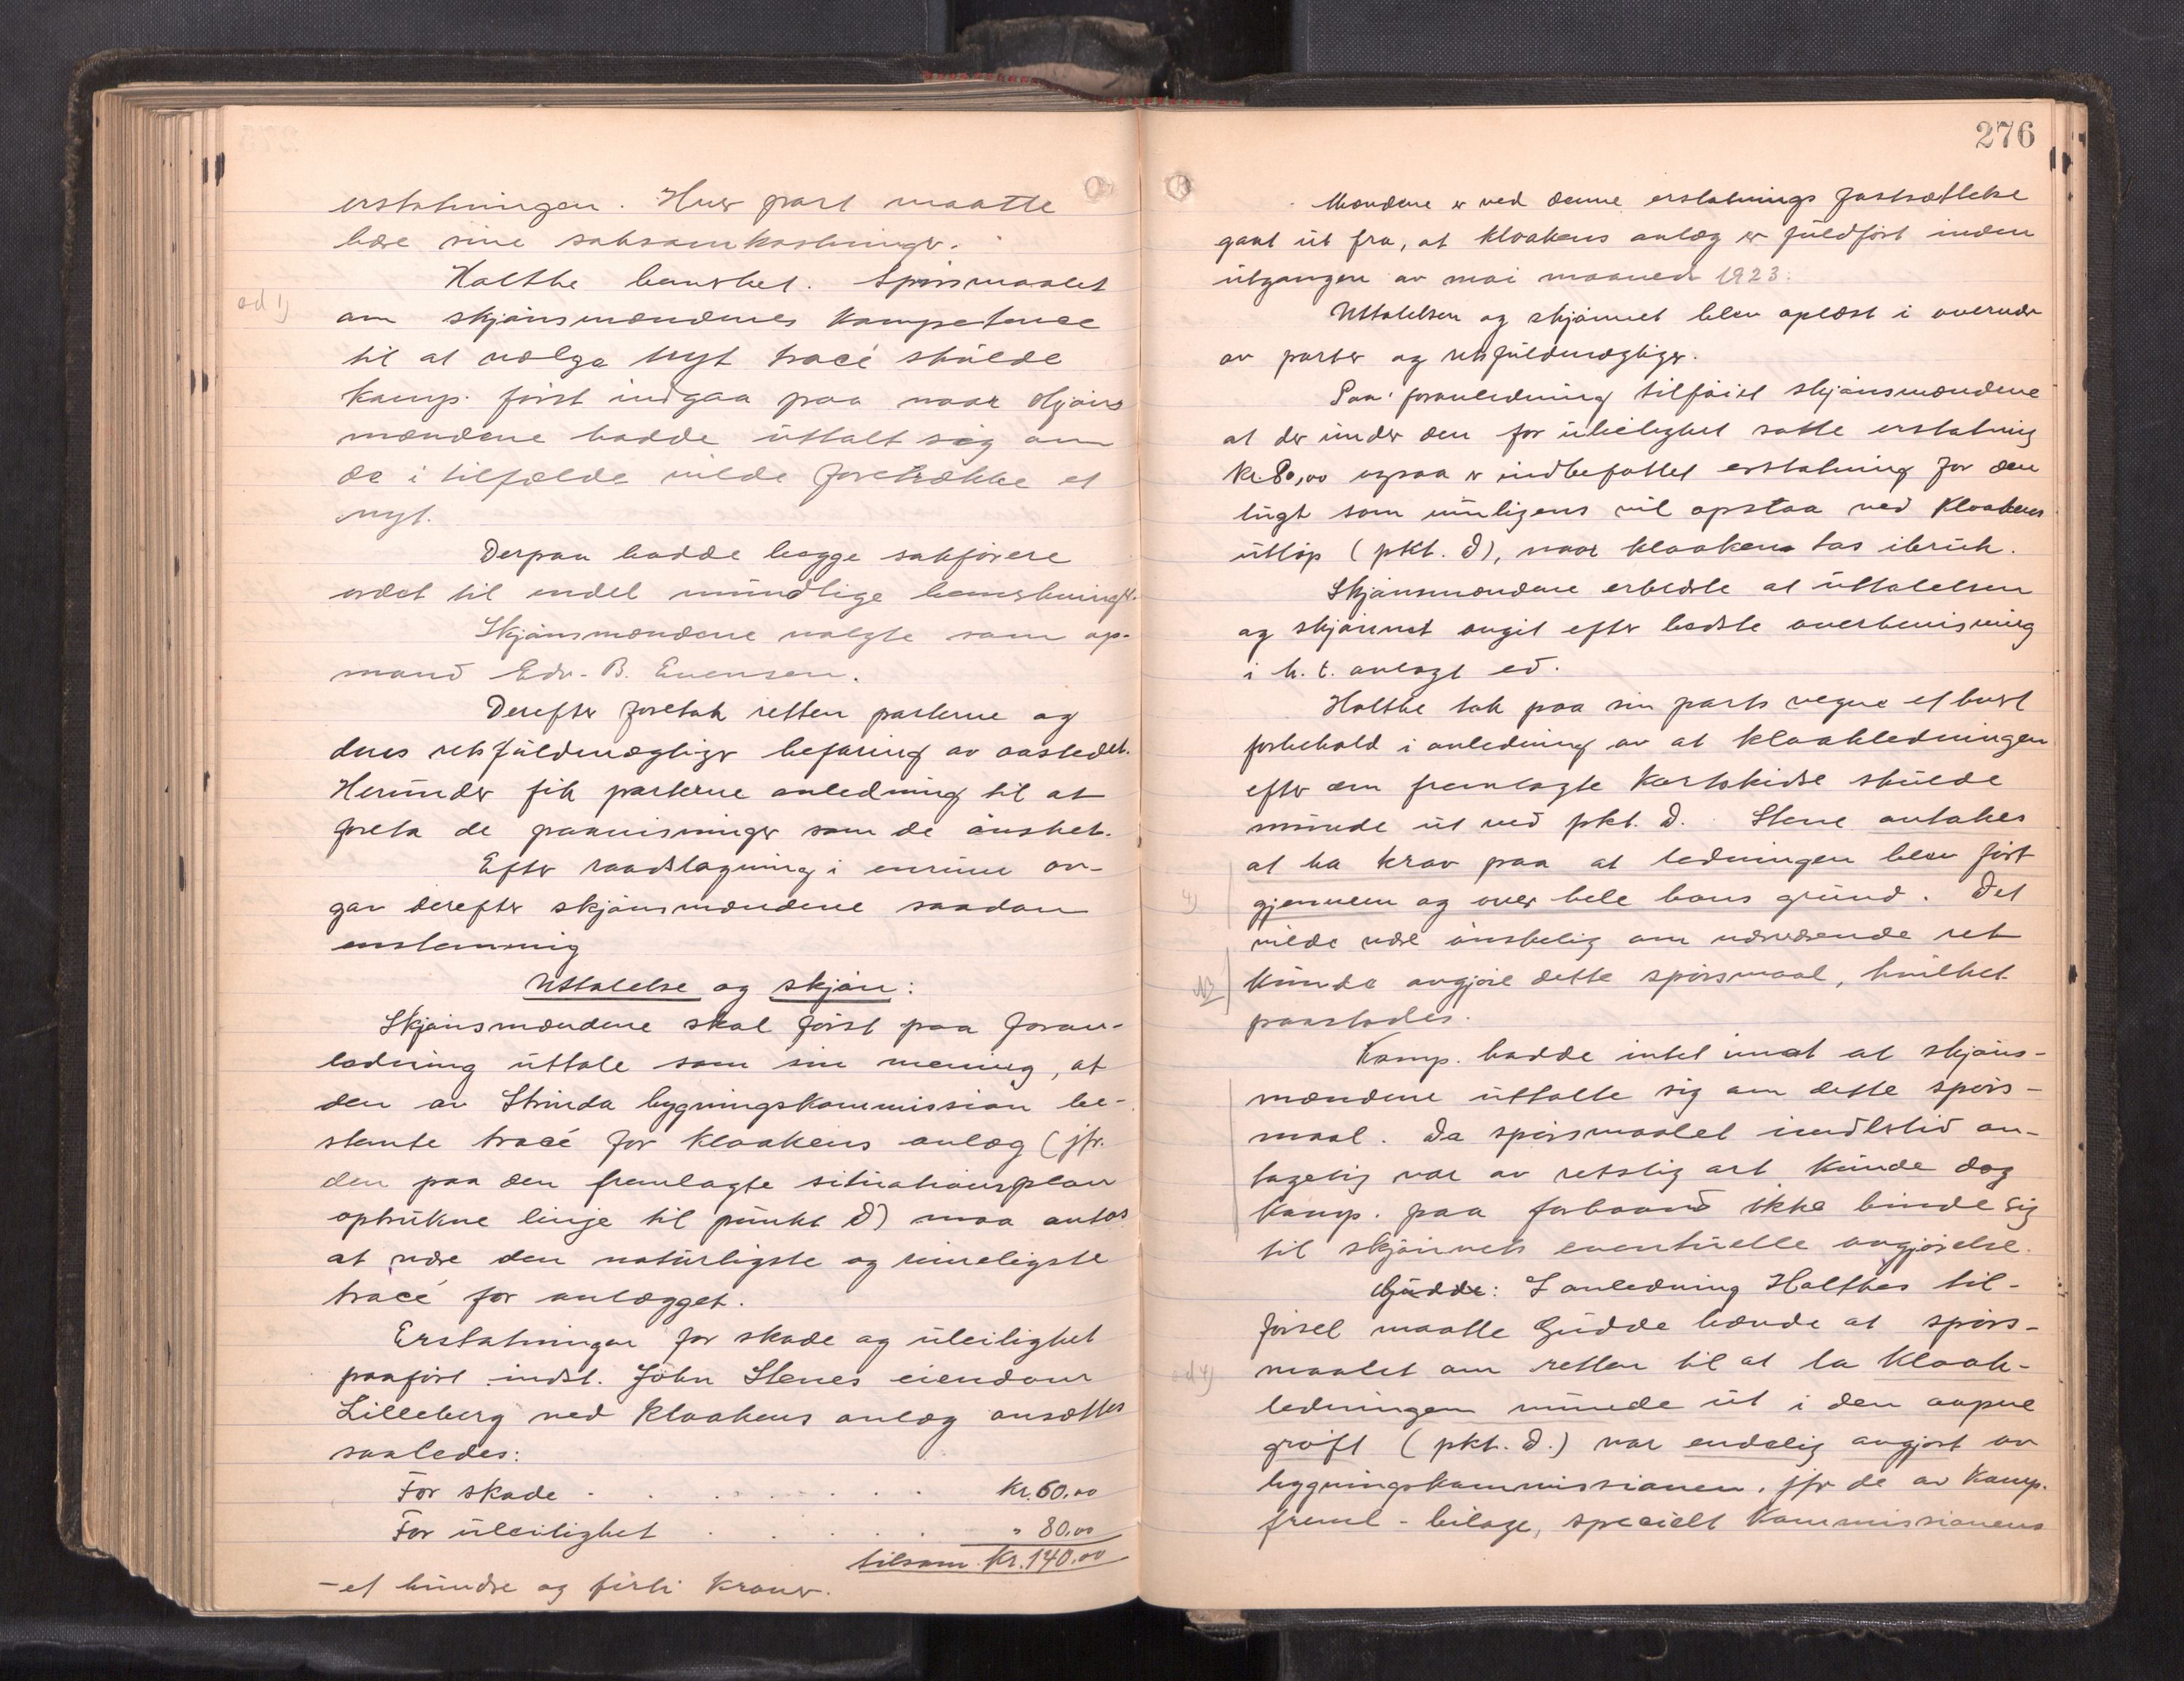 erstatningen. Hver part maatte
bære sine saksomkostninger.
Holthe bemerket. Spörsmaalet
ad 1)
om skjönsmændenes kompetence
til at vælge nyt tracé skulde
Komp. först indgaa paa naar skjöns
mændene hadde uttalt sig om
de i tilfælde vilde foretrække et
nyt.
Derpaa hadde begge sakförere
ordet til endel mundtlige bemerkninger.
Skjönsmændene valgte som op-
mand Edv. B. Evensen.
Derefter foretok retten parterne og
deres retsfuldmægtiger befaring av aastedet.
Herunder fik parterne anledning til at
foreta de paavisninger som de önsket.
Efter raadslagning i enrum av-
gav derefter skjönsmændene saadan
enstemmig
Uttalelse og skjön:
Skjönsmændene skal först paa foran-
ledning uttale som sin mening, at
den av Strinda bygningskommission be-
stemte tracé for kloakens anlæg (jfr.
den paa den fremlagte situationsplan
optrukne linje til punkt D) maa antas
at være den naturligste og rimeligste
tracé for anlægget.
Erstatningen for skade og uleilighet
paafört indst. John Stenes eiendom
Lilleberg ved kloakens anlæg ansættes
saaledes:
For skade . . . . . . . Kr. 60.00
For uleilighet . . . . . " 80.00
tilsam. Kr. 140.00
- et hundre og firti kroner.
276
Mændene er ved denne erstatnings fastsættelse
gaat ut fra, at kloakens anlæg er fuldfört inden
utgangen av mai maaned 1923.
Uttalelsen og skjönnet blev oplæst i overvær
av parter og retsfuldmægtiger.
Paa foranledning tilföiet skjönsmændene
at der under den for uleilighet satte erstatning
Kr. 80,00 ogsaa er indbefattet erstatning for den
lugt som muligens vil opstaa ved kloakens
utlöp (pkt. D), naar kloaken tas ibruk.
Skjönsmændene erklærte at uttalelsen
og skjönnet avgit efter bedste overbevisning
i h. t. avlagt ed.
Holthe tok paa sin parts vegne et burt
forbehold i anledning av at kloakledningen
efter den fremlagte kartskidse skulde
munde ut ved pkt. D. Stene antakes
at ha krav paa at ledningen blev fört
4)
gjennem og over hele hans grund. Det
vilde være önskelig om nærværende ret
NB
kunde avgjöre dette spörsmaal, hvilket
paastodes.
Komp. hadde intet imot at skjöns-
mændene uttalte sig om dette spörs-
maal. Da spörsmaalet imidlertid an-
tagelig var av retslig art kunde dog
Komp. paa forhaand ikke binde sig
til skjönnets eventuelle avgjörelse.
Gudde: I anledning Holthes til-
försel maatte Gudde hævde at spörs-
ad 4)
maalet om retten til at la kloak-
ledningen munde ut i den aapne
gröft (pkt. D.) var endelig avgjort av
bygningskommissionen, jfr de av Komp.
freml. bilage, specielt kommissionens